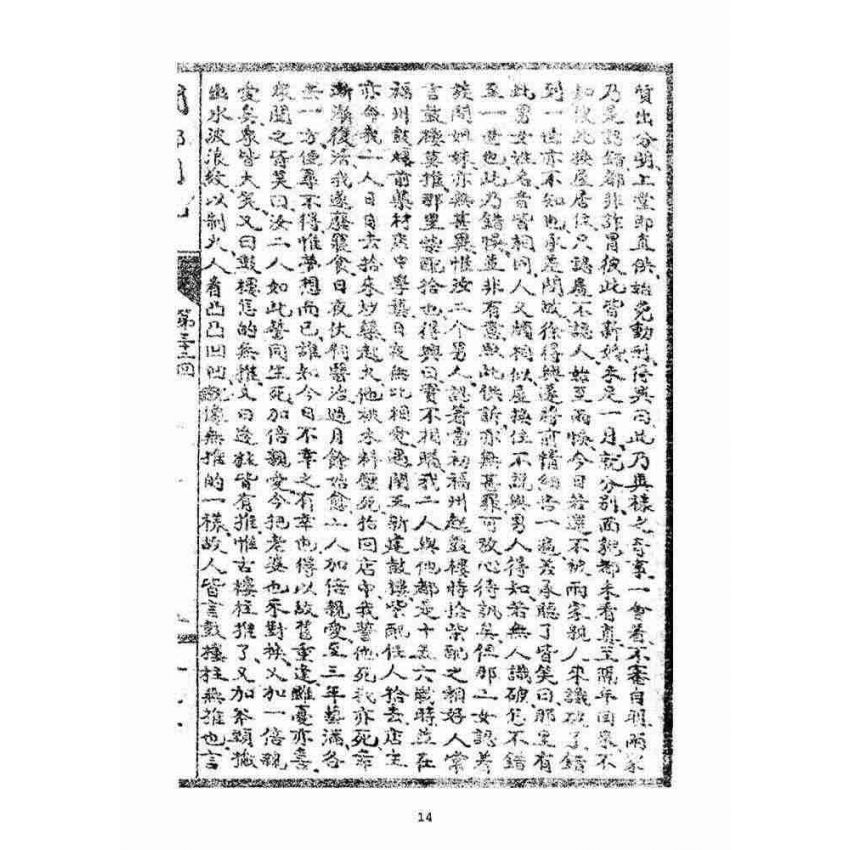 質出分明上堂即直供始免動刑得興曰此乃異樣之奇案一會着不審自明兩家
乃是認錯都非詐冒彼此皆新婚未足一月就分別面貌都未看真至隔年回來不
知彼此換屋居住只認屋不認人始至兩悞今日若還不被兩家親人來識破了錯
到一世亦不知也承差問故徐得興遂將前情細告一遍差承聽了皆笑曰那里有
此男女姓名音皆相同人又頗相似屋換住不說與男人得知若無人識破豈不錯
至一世也此乃錯悞並非有意照此供訴亦無甚罪可放心待訊矣但那二女認着
姊妹亦無甚異惟汝二個男人說着當初福州起鼓樓時拾柴配之相好人常
言鼓樓莫推那里柴配拾也得興曰實不相瞞我二人與他都是十五六歲時並在
福州鼓樓前藥材店中學藝日夜無比相愛遇閩王新建鼓樓柴配任人拾去店主
亦命我二人日日去拾來炒藥起火他被木料壓死抬回店中我誓他死我亦死幸
漸漸復活我遂廢寢食日夜伏伺醫治過月餘始愈二人加倍親愛至三年藝滿各
去一方便尋不得惟夢想而已誰知今日不幸之有幸也得以故舊重逢雖憂亦喜
衆聞之皆笑曰汝二人如此誓同生死加倍親愛今把老婆也來對換又加一倍親
愛矣衆皆大笑又曰鼓樓怎的無推又曰逸旅皆有推惟古樓柱推了又加斧頭撇
幽水波浪紋以制火人看凸凸凹凹像無推的一樣故人皆言鼓樓柱無推也言
第二十二回
14